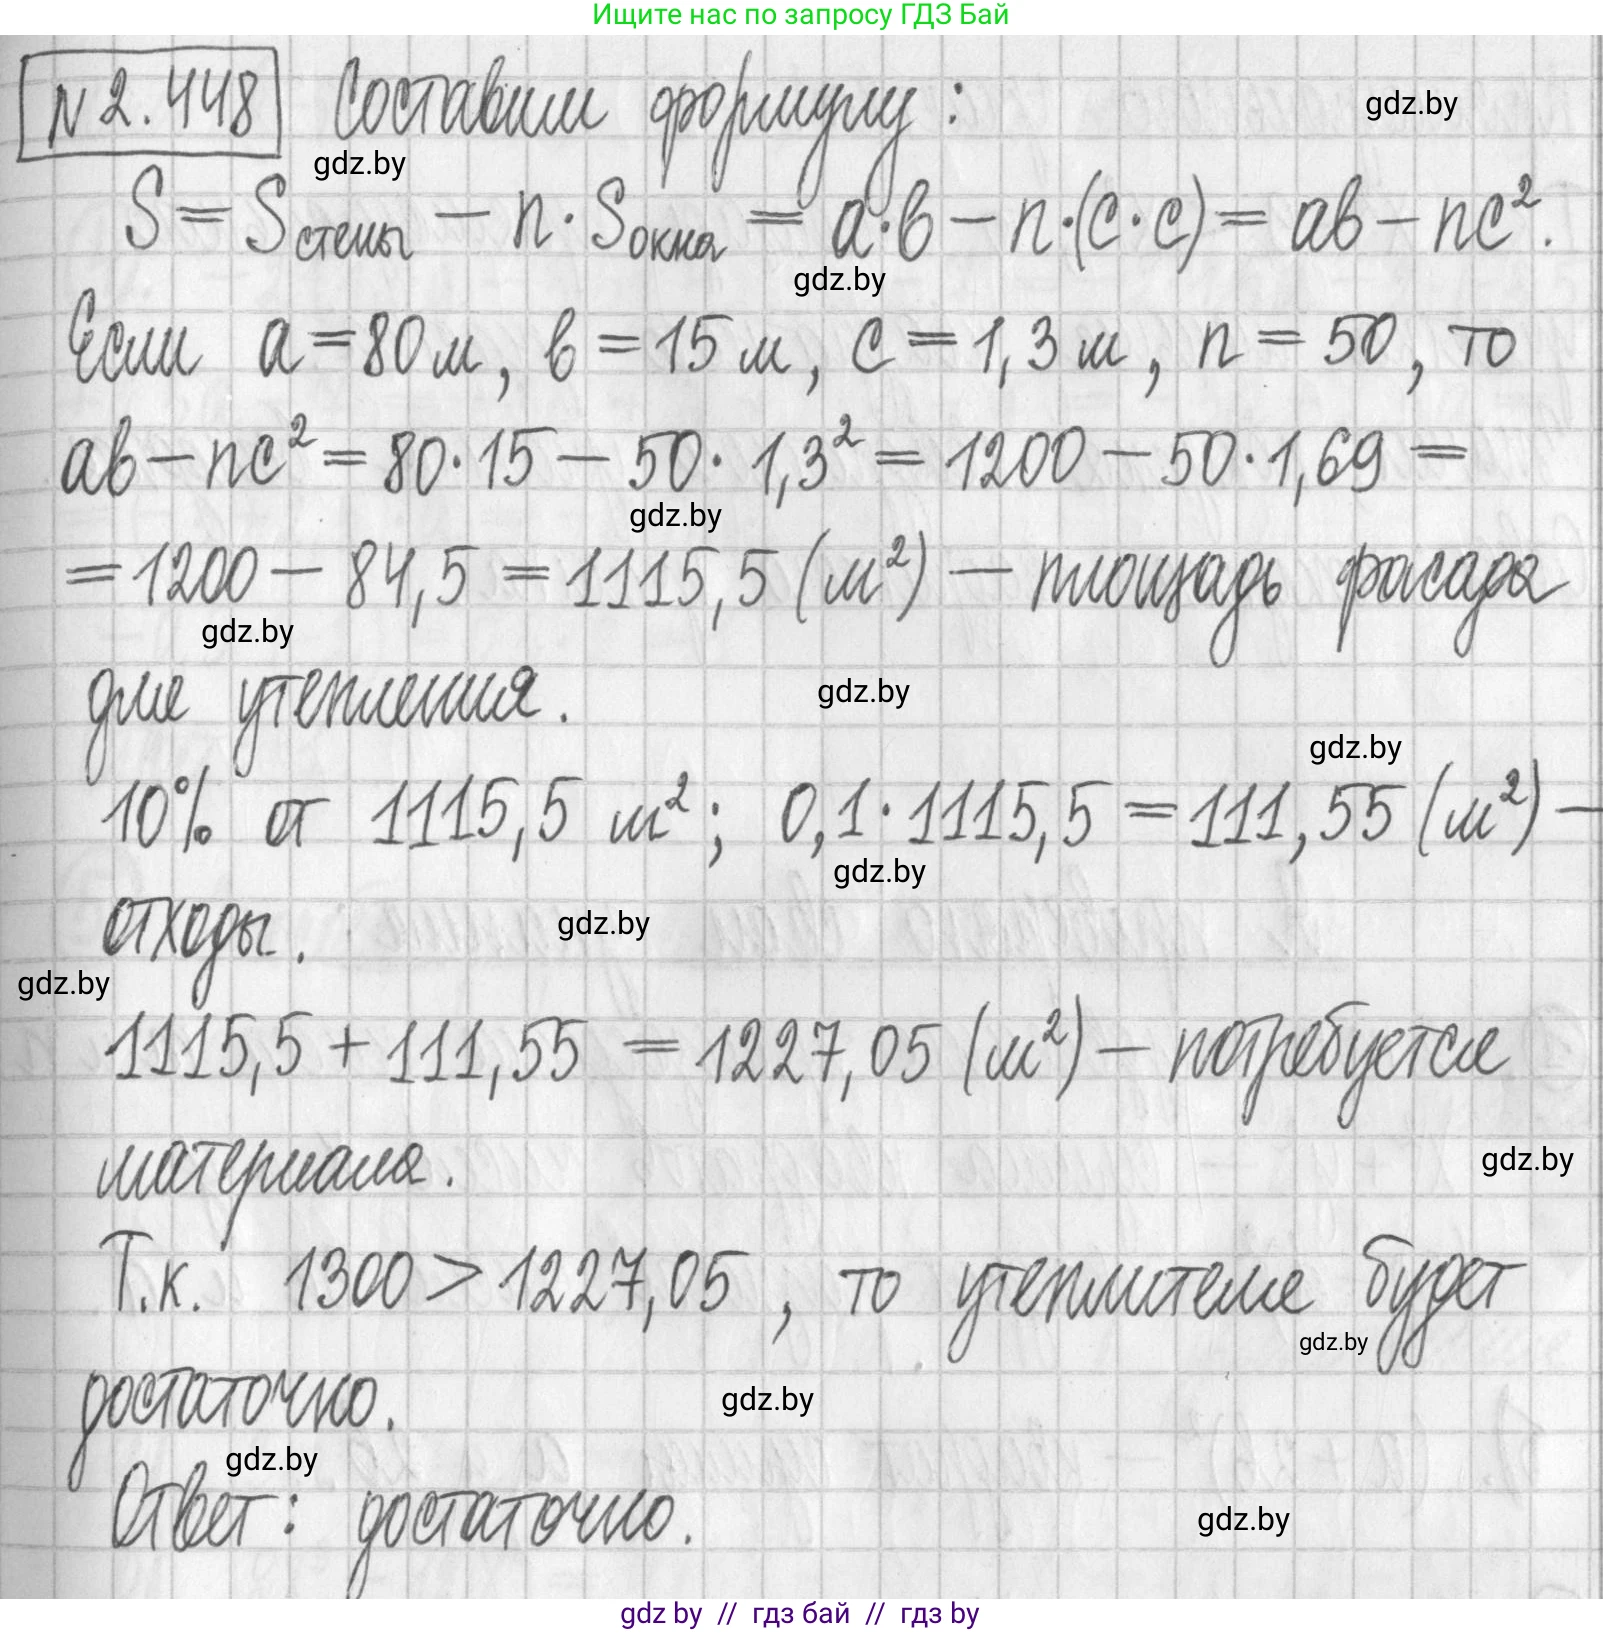 Ищите нас по запросу ГДЗ Бай
N 2.448 Составим формулу: gdz.by
gdz.by
S = Sстены − n · Sокна = a·b − n·(c·c) = ab − nc².
gdz.by
Если a = 80 м, b = 15 м, c = 1,3 м, n = 50, то
ab − nc² = 80·15 − 50· 1,3² = 1200 − 50·1,69 =
gdz.by
= 1200 − 84,5 = 1115,5 (м²) — площадь фасада
gdz.by
для утепления. gdz.by
gdz.by
10% от 1115,5 м²; 0,1·1115,5 = 111,55 (м²) —
gdz.by
отходы. gdz.by
gdz.by
1115,5 + 111,55 = 1227,05 (м²) — потребуется
материала. gdz.by
Т.к. 1300 > 1227,05, то утеплителя будет
gdz.by
достаточно. gdz.by
gdz.by
Ответ: достаточно. gdz.by
gdz by // гдз бай // гдз by